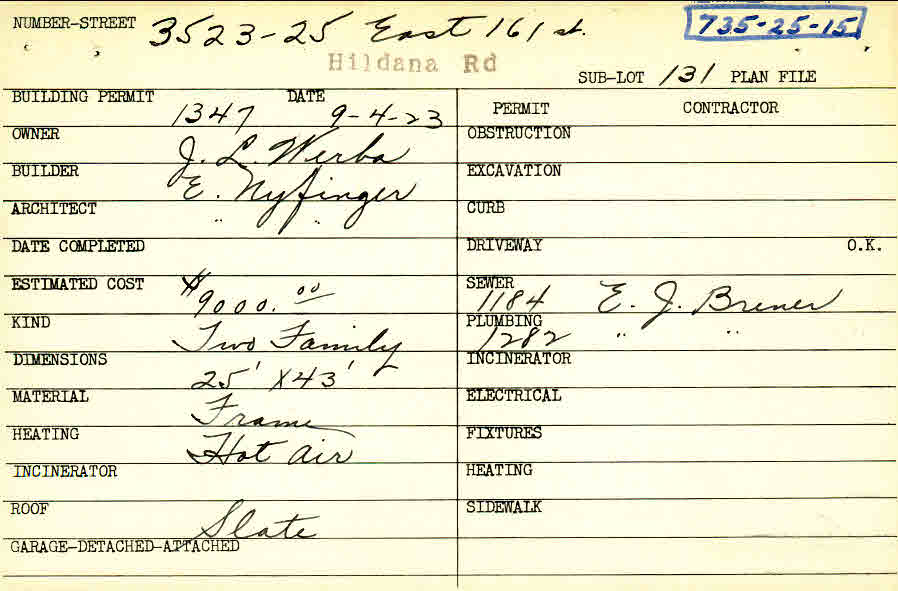 NUMBER-STREET 3523-25 East 161 st. 735-25-15
Hildana Rd
SUB-LOT 131 PLAN FILE
BUILDING PERMIT 1347 DATE 9-4-23
PERMIT CONTRACTOR
OWNER J. L. Werba
OBSTRUCTION
BUILDER E. Nyfinger
EXCAVATION
ARCHITECT " "
CURB
DATE COMPLETED
DRIVEWAY O.K.
ESTIMATED COST $9000.00
SEWER 1184 E. J. Brener
KIND Two Family
PLUMBING 1282 " "
DIMENSIONS 25' X 43'
INCINERATOR
MATERIAL Frame
ELECTRICAL
HEATING Hot Air
FIXTURES
INCINERATOR
HEATING
ROOF Slate
SIDEWALK
GARAGE-DETACHED-ATTACHED